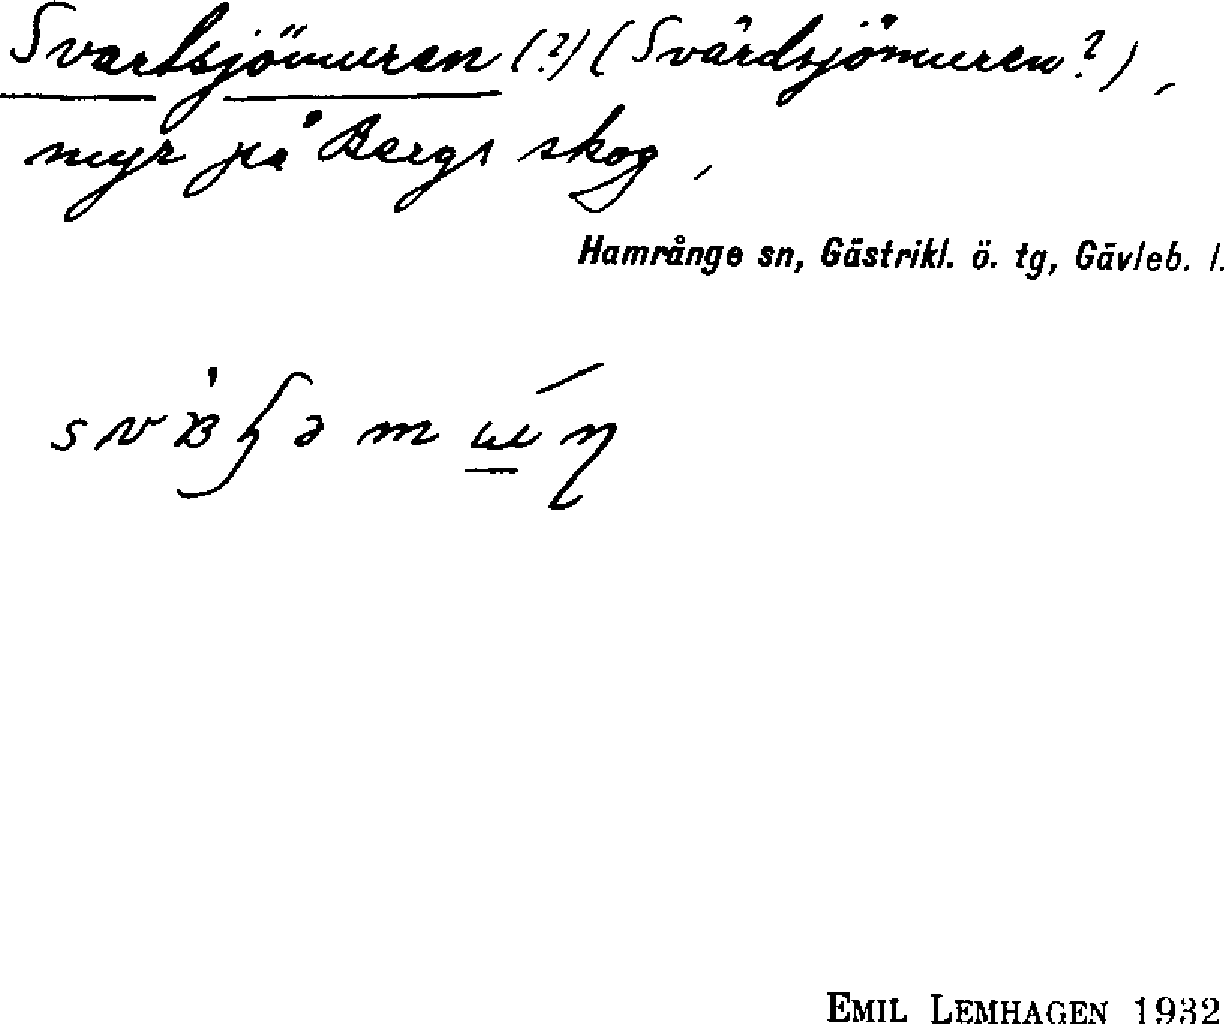 Svartsjömuren (?) (Svärdsjömuren?),
myr på Bergs skog,
Hamrånge sn, Gästrikl. ö. tg, Gävleb. l.
EMIL LEMHAGEN 1932